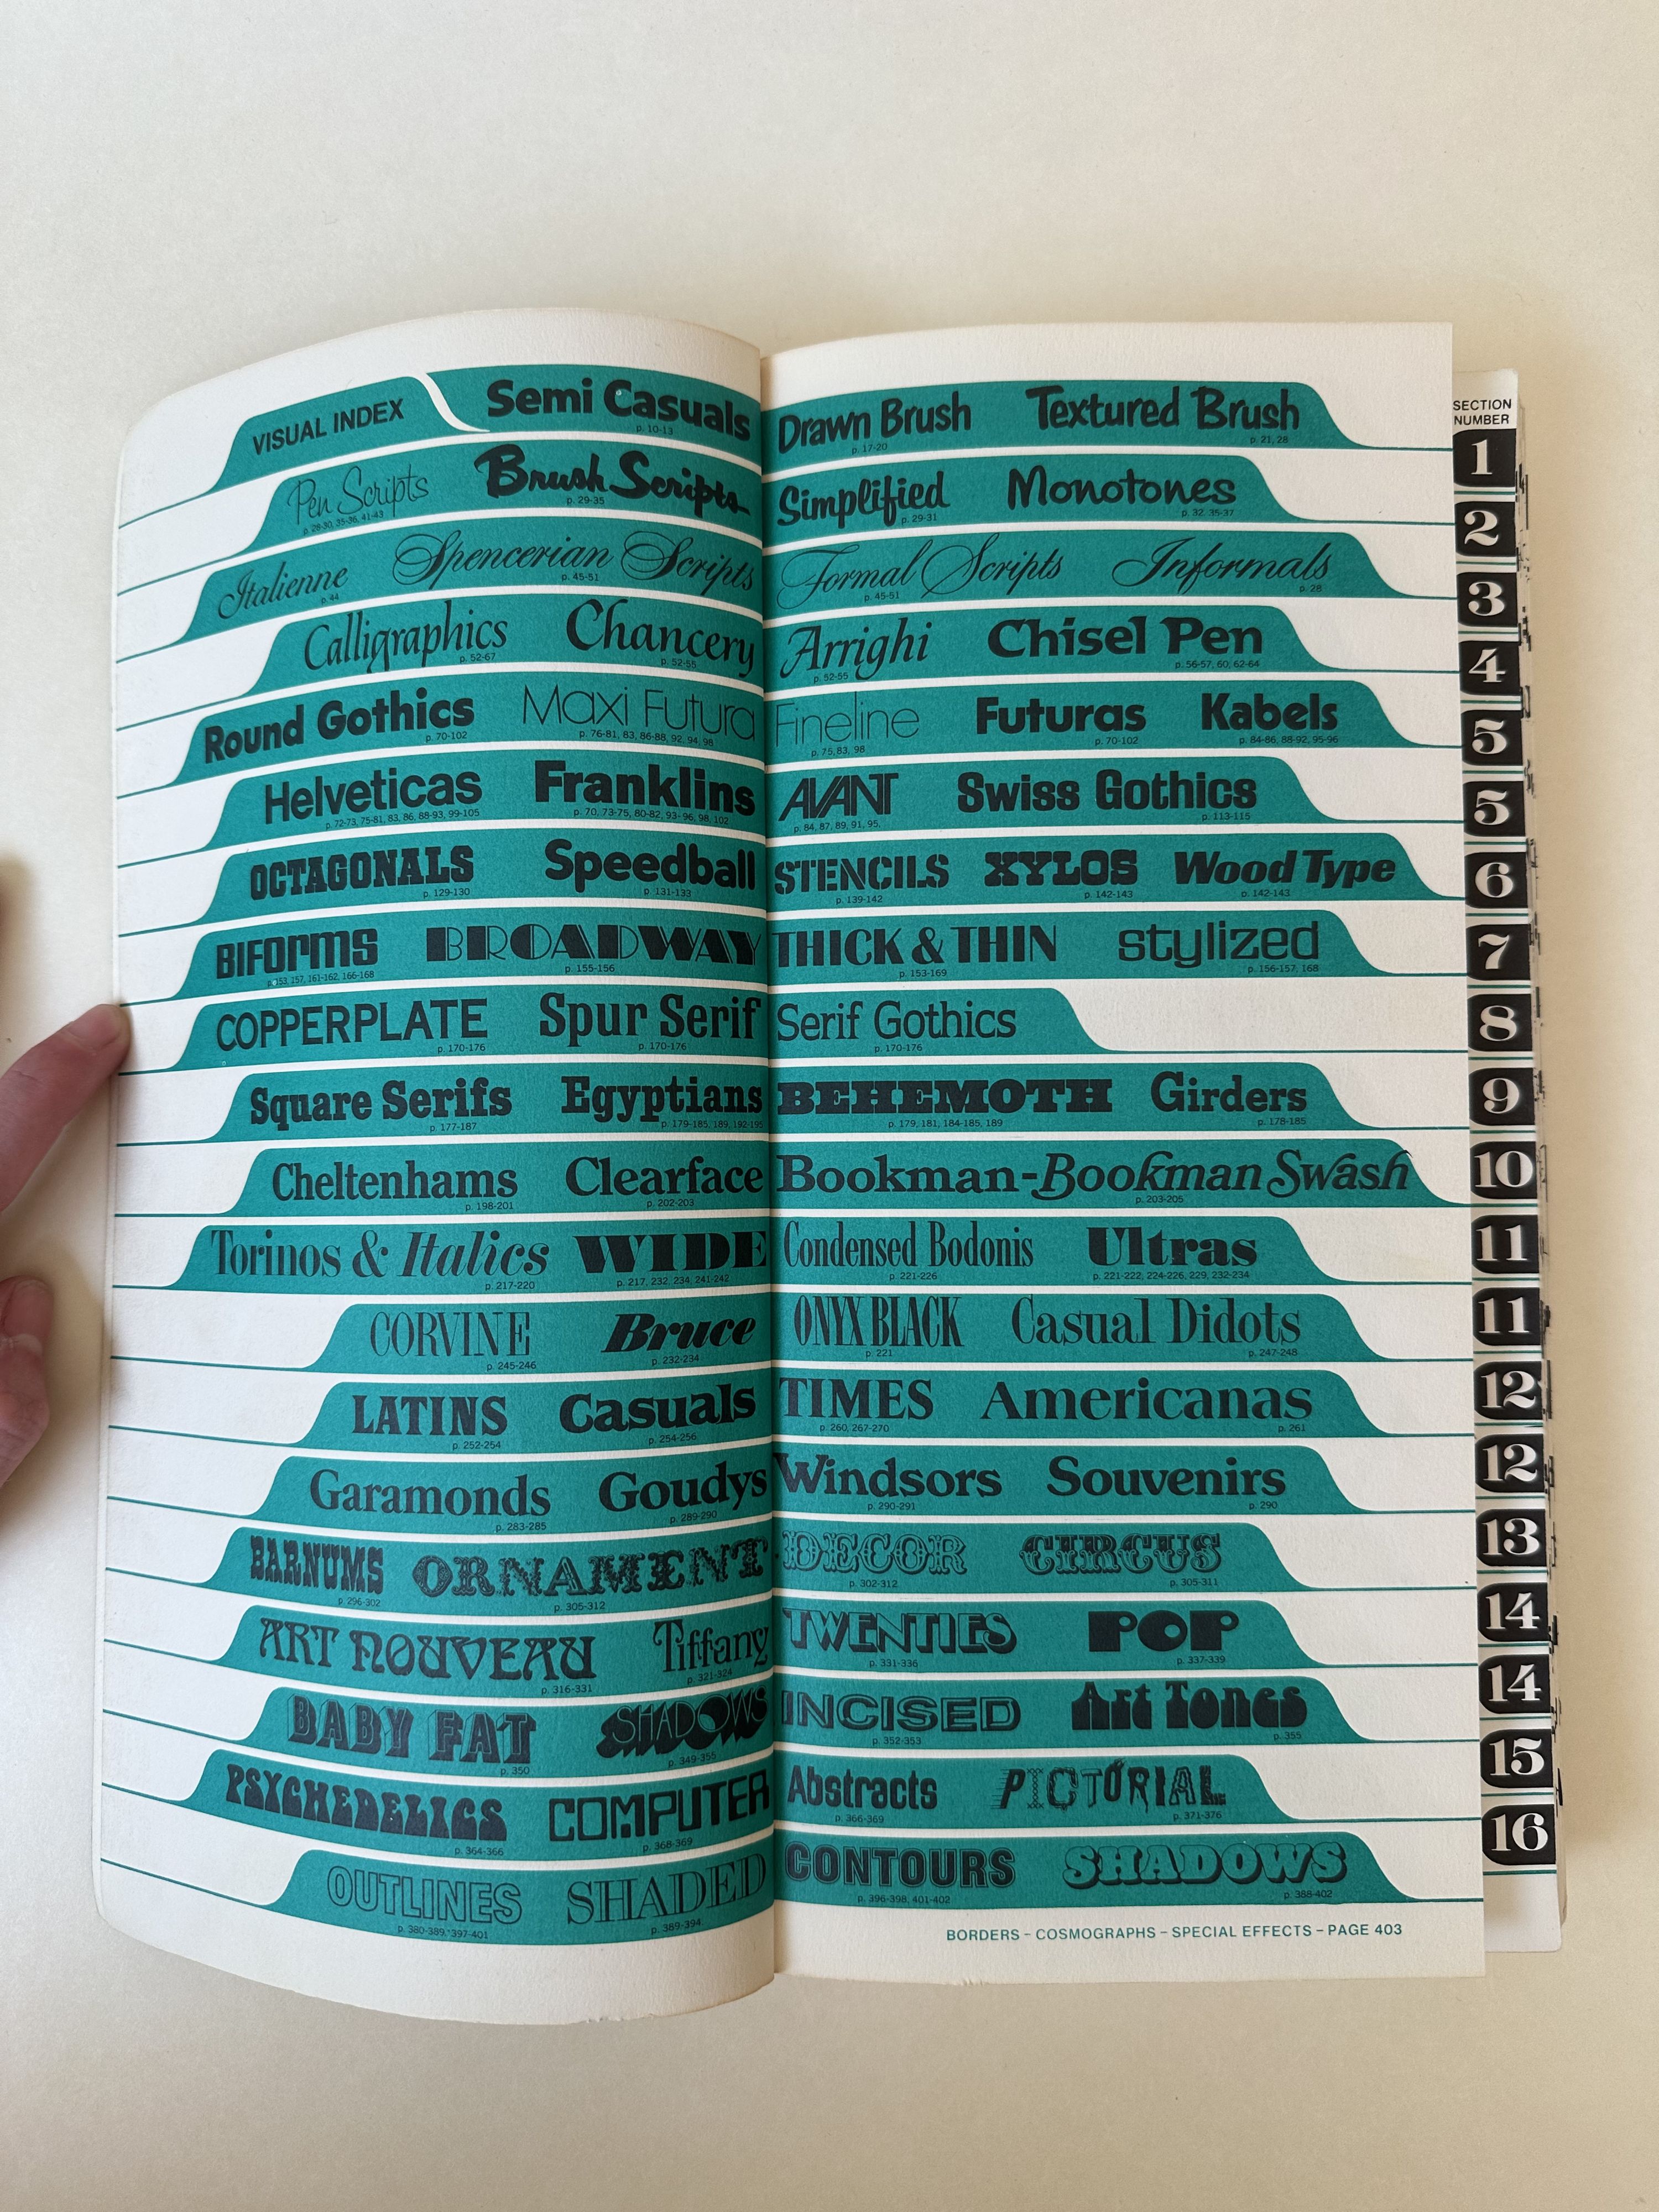 VISUAL INDEX Semi Casuals Drawn Brush Textured Brush SECTION NUMBER
p. 10-13 p. 17-20 p. 21, 28 1
Pen Scripts Brush Scripts Simplified Monotones 2
p. 28-30, 35-36, 41-43 p. 29-35 p. 29-31 p. 32, 35-37
Italienne Spencerian Scripts Formal Scripts Informals 3
p. 44 p. 45-51 p. 45-51 p. 28
Calligraphics Chancery Arrighi Chisel Pen 4
p. 52-67 p. 52-55 p. 52-55 p. 56-57, 60, 62-64
Round Gothics Maxi Futura Fineline Futuras Kabels 5
p. 70-102 p. 76-81, 83, 86-88, 92, 94, 98 p. 75, 83, 98 p. 70-102 p. 84-86, 88-92, 95-96
Helveticas Franklins AVANT Swiss Gothics 5
p. 72-73, 75-81, 83, 86, 88-93, 99-105 p. 70, 73-75, 80-82, 93-96, 98, 102 p. 84, 87, 89, 91, 95. p. 113-115
OCTAGONALS Speedball STENCILS XYLOS Wood Type 6
p. 129-130 p. 131-133 p. 139-142 p. 142-143 p. 142-143
BIFORMS BROADWAY THICK & THIN stylized 7
p. 153, 157, 161-162, 166-168 p. 155-156 p. 153-169 p. 156-157, 168
COPPERPLATE Spur Serif Serif Gothics 8
p. 170-176 p. 170-176 p. 170-176
Square Serifs Egyptians BEHEMOTH Girders 9
p. 177-187 p. 179-185, 189, 192-195 p. 179, 181, 184-185, 189 p. 178-185
Cheltenhams Clearface Bookman-Bookman Swash 10
p. 198-201 p. 202-203 p. 203-205
Torinos & Italics WIDE Condensed Bodonis Ultras 11
p. 217-220 p. 217, 232, 234, 241-242 p. 221-226 p. 221-222, 224-226, 229, 232-234
CORVINE Bruce ONYX BLACK Casual Didots 11
p. 245-246 p. 232-234 p. 221 p. 247-248
LATINS Casuals TIMES Americanas 12
p. 252-254 p. 254-256 p. 260, 267-270 p. 261
Garamonds Goudys Windsors Souvenirs 12
p. 283-285 p. 289-290 p. 290-291 p. 290
BARNUMS ORNAMENT DECOR CIRCUS 13
p. 296-302 p. 305-312 p. 302-312 p. 305-311
ART NOUVEAU Tiffany TWENTIES POP 14
p. 316-331 p. 321-324 p. 331-336 p. 337-339
BABY FAT SHADOWS INCISED Art Tones 14
p. 350 p. 349-355 p. 352-353 p. 355
PSYCHEDELICS COMPUTER Abstracts PICTORIAL 15
p. 364-366 p. 368-369 p. 366-369 p. 371-376
OUTLINES SHADED CONTOURS SHADOWS 16
p. 380-389, 397-401 p. 389-394 p. 396-398, 401-402 p. 388-402
BORDERS – COSMOGRAPHS – SPECIAL EFFECTS – PAGE 403